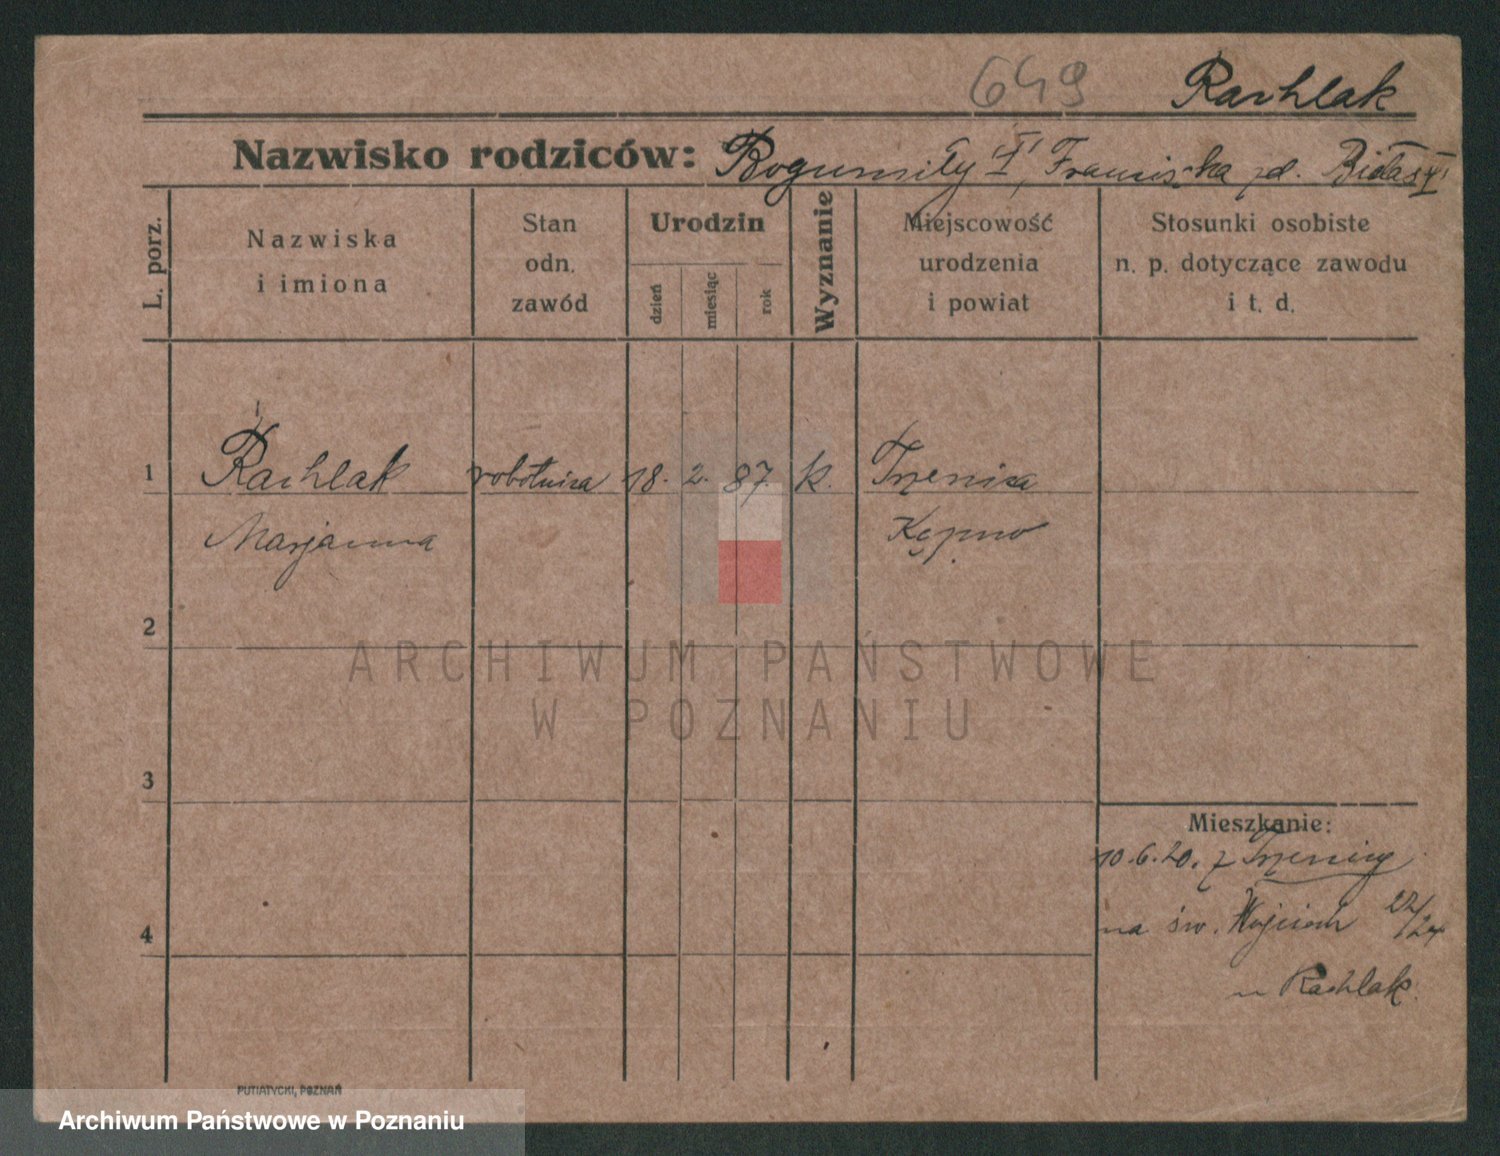 649 Rachlak
Nazwisko rodziców: Bogumiły I, Franciszka zd. Białas
L. porz.
Nazwiska
i imiona
Stan
odn.
zawód
Urodzin
dzień
miesiąc
rok
Wyznanie
Miejscowość
urodzenia
i powiat
Stosunki osobiste
n. p. dotyczące zawodu
i t. d.
1 Rachlak robotnica 18. 2. 87. k. Trzenica
Marjanna Kępno
2
3
4
Mieszkanie:
10.6.20. z Trzenicy
na św. Wojciech 22/24
u Rachlak.
PUTIATYCKI, POZNAŃ
ARCHIWUM PAŃSTWOWE
W POZNANIU
Archiwum Państwowe w Poznaniu